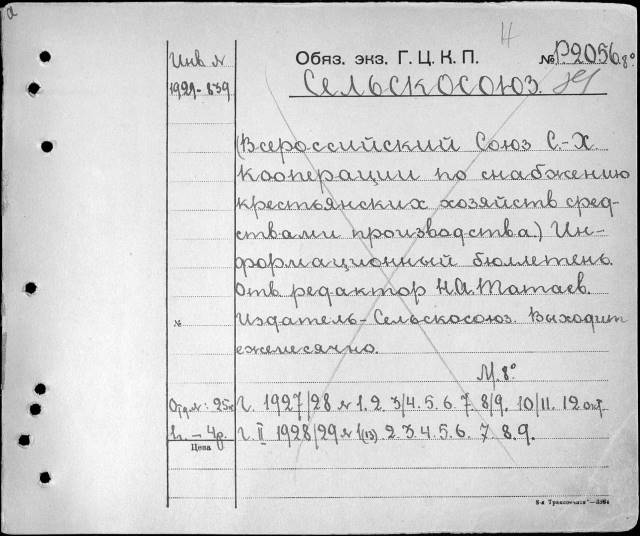 a
Инв №
1929-839
Обяз. экз. Г. Ц. К. П.
№ Р.2056.8°
Сельскосоюз.
(Всероссийский Союз С.-Х
кооперации по снабжению
крестьянских хозяйств сред-
ствами производства.) Ин-
формационный бюллетень.
Отв. редактор Н.А. Татаев.
№
Издатель - Сельскосоюз. Выходит
ежемесячно.
М. 8°
Отд.№: 25к
г. 1927/28 № 1. 2. 3/4. 5. 6. 7. 8/9. 10/11. 12 окт.
1г. - 4р.
г. II 1928/29 № 1(13) 2. 3. 4. 5. 6. 7 8. 9.
Цена